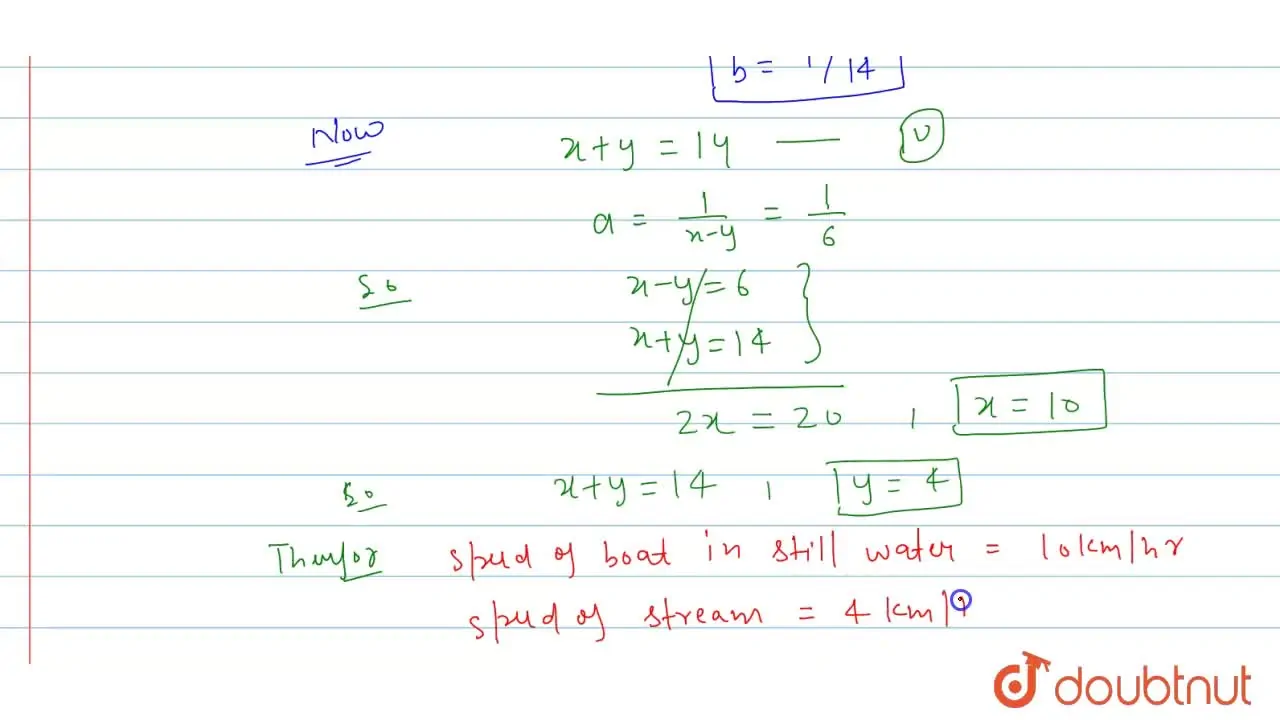 b = 1/14
Now x+y = 14 — (v)
a = 1/(x-y) = 1/6
So x-y = 6
x+y = 14
2x = 20 , x = 10
So x+y = 14 , y = 4
Therfor speed of boat in still water = 10km/hr
speed of stream = 4 km/h
doubtnut